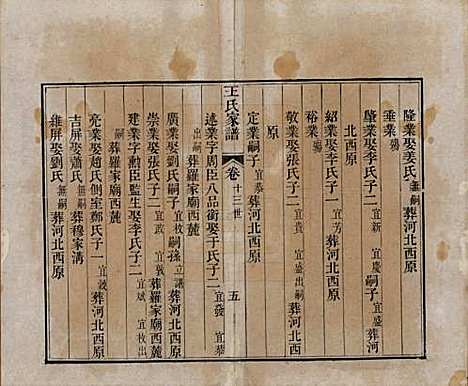 隆業娶姜氏無嗣葬河北西原
垂業殤
肇業娶李氏子二宜新 宜慶嗣子宜盛葬河
北西原
紹業娶李氏子一宜芳葬河北西原
裕業殤
敬業娶張氏子二宜貴 宜盛出嗣葬河北西
原
定業嗣子宜恭葬河北西原
王氏家譜 卷 十三世 五
述業字周臣八品銜娶于氏子二宜發 宜恭
出嗣葬羅家廟西麓
廣業娶劉氏嗣子宜枚嗣孫立謙葬河北西原
崇業娶張氏子二宜政 宜敦葬羅家廟西麓
建業字勲臣監生娶李氏子二宜斌 宜枚出
嗣葬羅家廟西麓
亮業娶趙氏側室鄭氏子一宜敦葬河北西原
吉屏娶蕭氏無嗣葬穆家溝
維屏娶劉氏無嗣葬河北西原